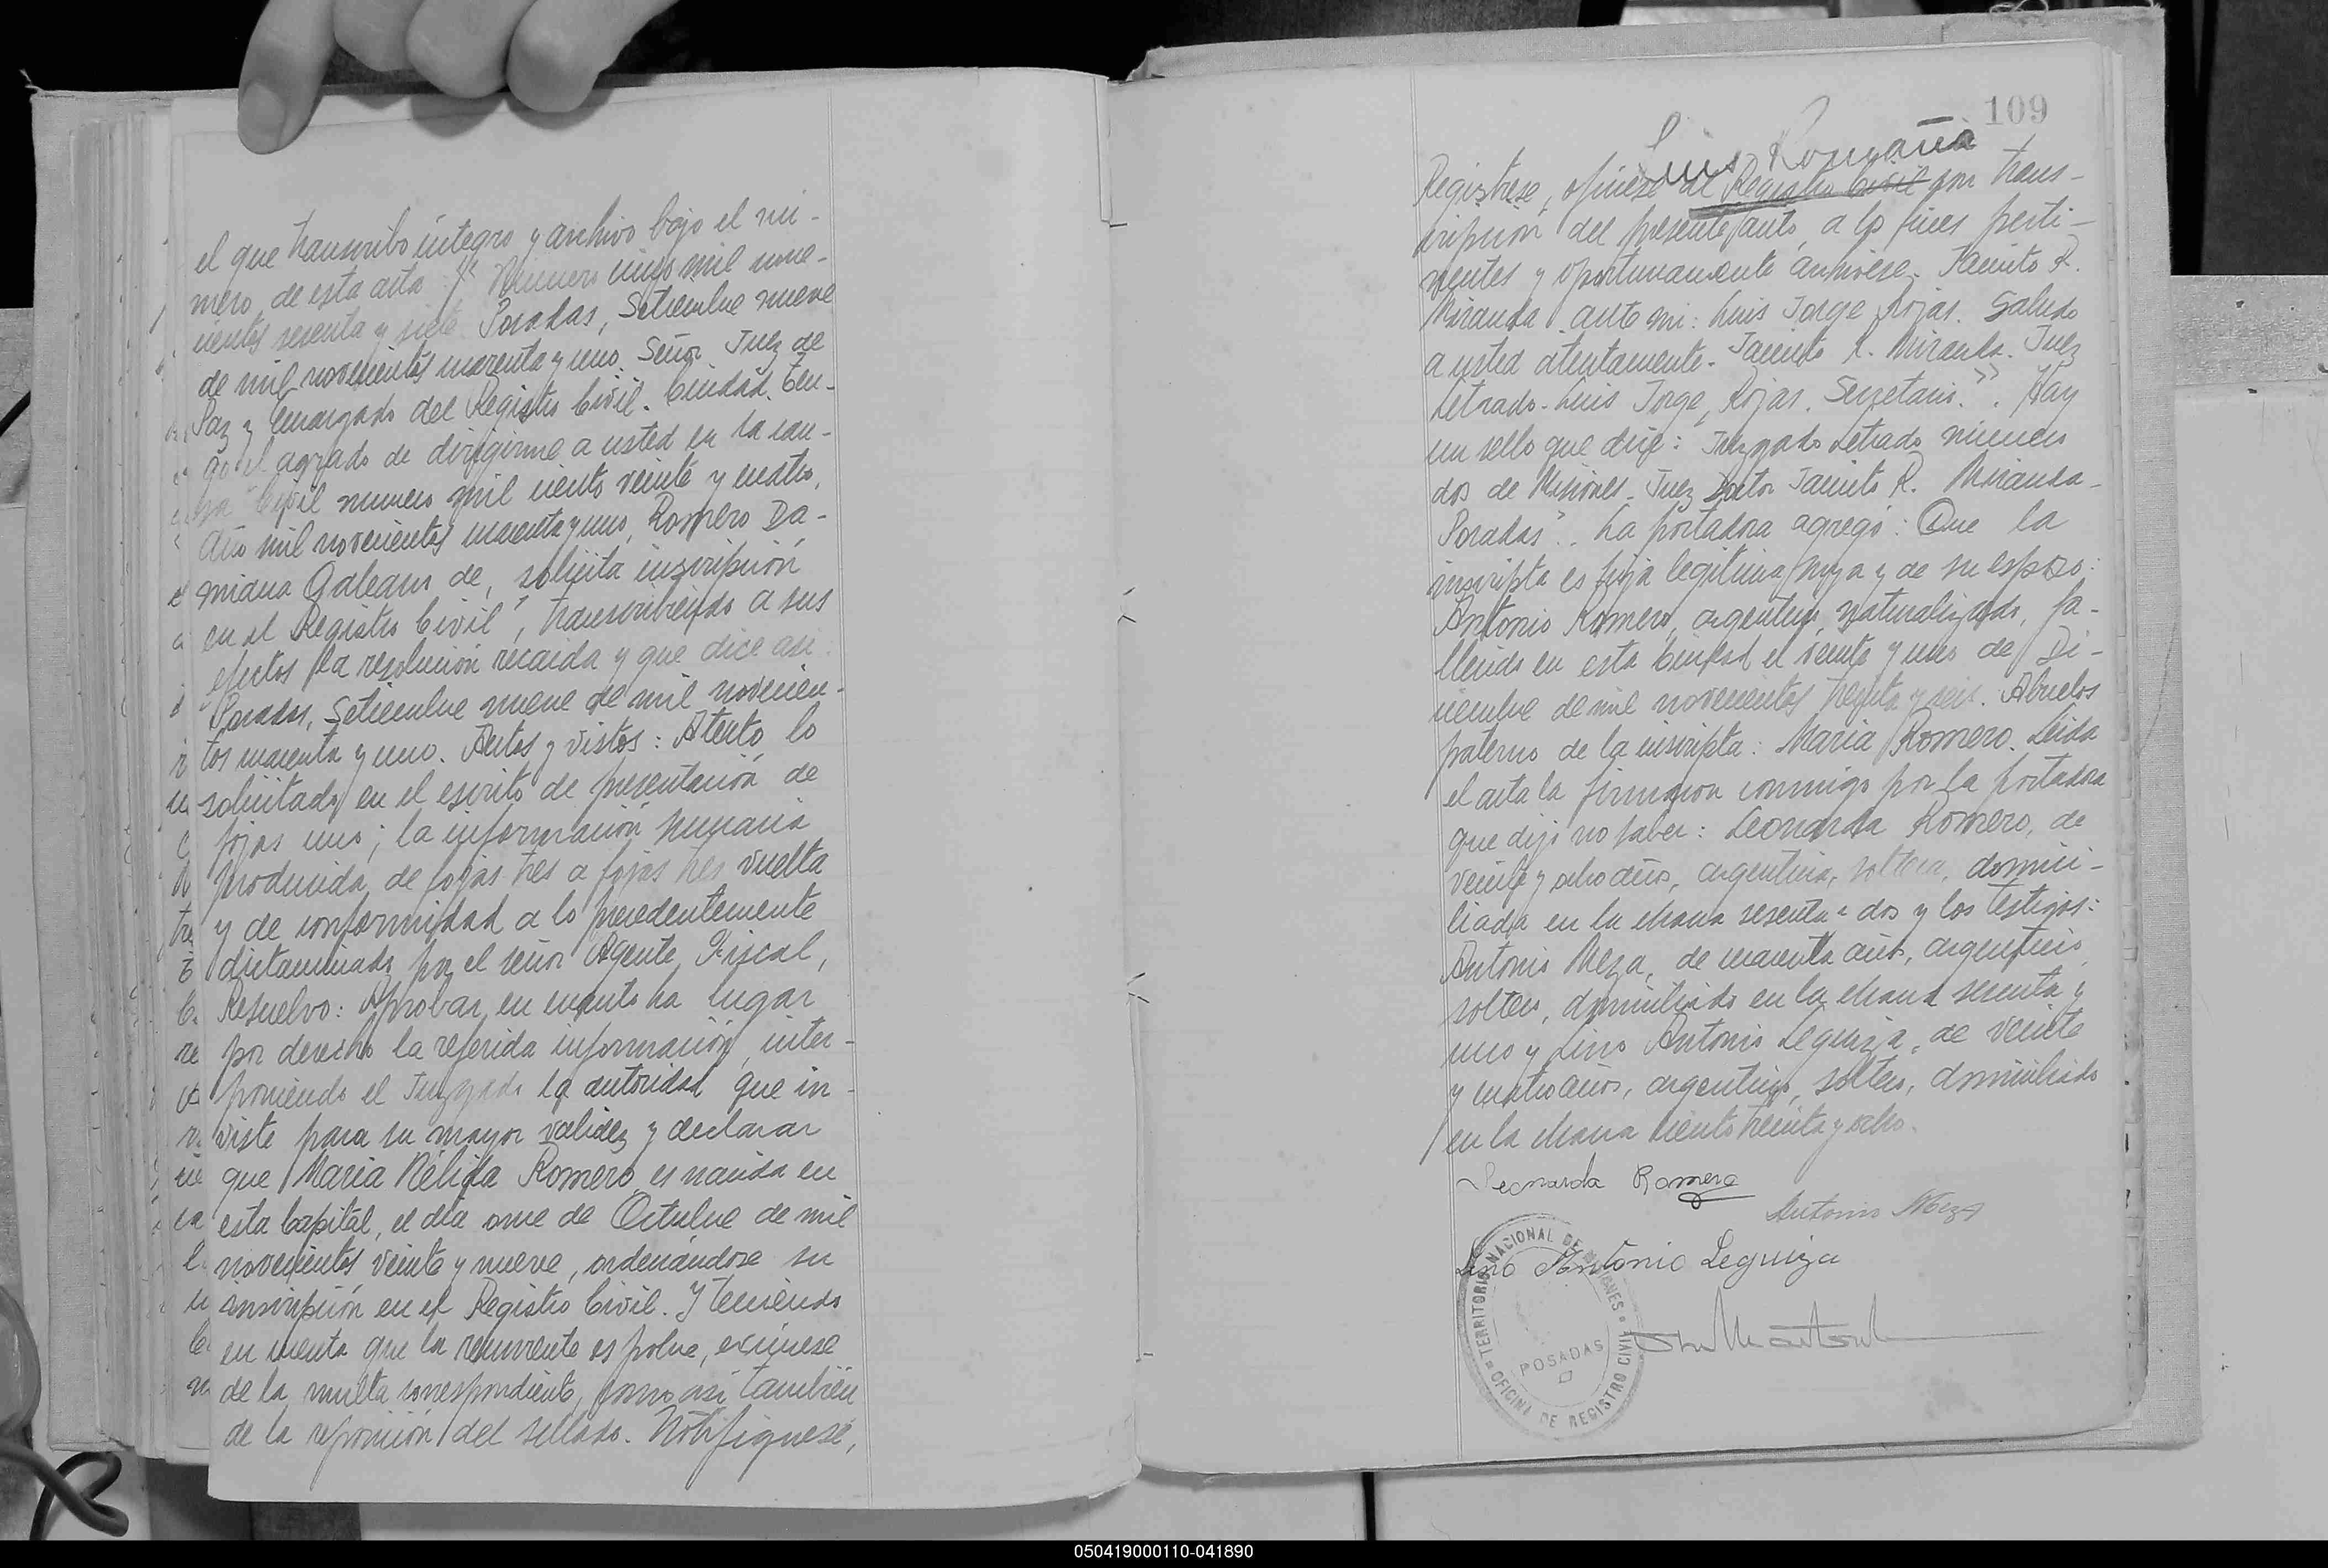 el que transcribo íntegro y archivo bajo el nú-
mero de esta acta: "Número mil nove-
cientos sesenta y siete. Posadas, Setiembre nueve
de mil novecientos cuarenta y uno. Señor Juez de
Paz y Encargado del Registro Civil. Ciudad. Ten-
go el agrado de dirigirme a usted en la cau-
sa Civil número mil ciento veinte y cuatro,
año mil novecientos cuarenta y uno, Romero Da-
miana Galeano de, solicita inscripción
en el Registro Civil", transcribiendo a sus
efectos la resolución recaida y que dice asi:
Posadas, Setiembre nueve de mil novecien-
tos cuarenta y uno. Autos y vistos: Atento lo
solicitado en el escrito de presentación de
fojas uno; la información sumaria
producida de fojas tres a fojas tres vuelta
y de conformidad a lo precedentemente
dictaminado por el señor Agente Fiscal,
Resuelvo: Aprobar en cuanto ha lugar
por derecho la referida información, inter-
poniendo el Juzgado la autoridad que in-
viste para su mayor validez y declarar
que Maria Nélida Romero es nacida en
esta Capital, el día once de Octubre de mil
novecientos veinte y nueve, ordenándose su
inscripción en el Registro Civil. Y teniendo
en cuenta que la recurrente es pobre, exímese
de la multa correspondiente, como asi también
de la reposición del sellado. Notifíquese,
109
Luis Romaña
Registrese, ofíciese al Registro Civil con trans-
cripción del presente auto, a los fines perti-
nentes y oportunamente archívese. Jacinto R.
Miranda. ante mi: Luis Jorge Rojas. Saludo
a usted atentamente. Jacinto R. Miranda. Juez
Letrado. Luis Jorge Rojas. Secretario.". Hay
un sello que dice: "Juzgado Letrado número
dos de Misiones. Juez Doctor Jacinto R. Miranda-
Posadas". La portadora agregó: Que la
inscripta es hija legitima suya y de su esposo:
Antonio Romero, argentino naturalizado, fa-
llecido en esta Ciudad el veinte y uno de Di-
ciembre de mil novecientos treinta y seis. Abuelos
paterno de la inscripta: Maria Romero. Leida
el acta la firmaron conmigo por la portadora
que dijo no saber: Leonarda Romero, de
veinte y ocho años, argentina, soltera, domici-
liada en la chacra sesenta y dos y los testigos:
Antonio Meza, de cuarenta años, argentino,
soltero, domiciliado en la chacra sesenta y
uno y Lino Antonio Leguiza, de veinte
y cuatro años, argentino, soltero, domiciliado
en la chacra ciento treinta y ocho.
Leonarda Romero
Antonio Meza
Lino Antonio Leguiza
TERRITORIO NACIONAL DE MISIONES
OFICINA DE REGISTRO CIVIL
POSADAS
050419000110-041890